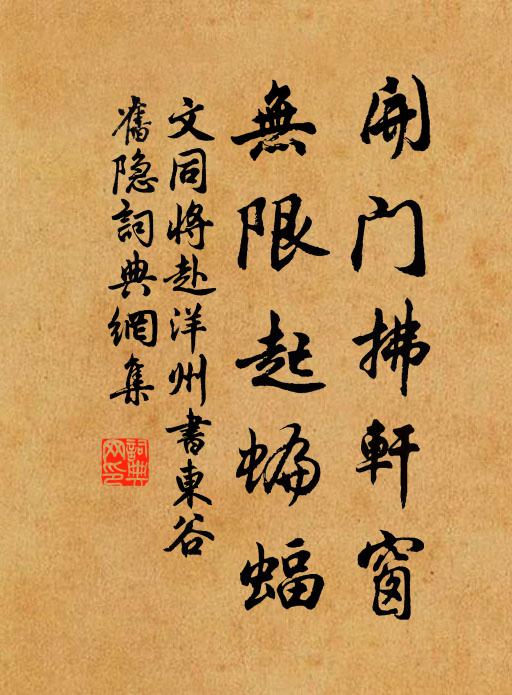 開门拂軒窗
無限起蝙蝠
文同将赴洋州書東谷
舊隐詞典網集
詞典网印